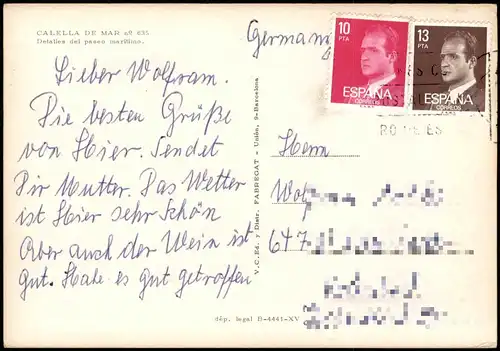 CALELLA DE MAR nº 635
Detalles del paseo marítimo.
Lieber Wolfram.
Die besten Grüße
von Hier. Sendet
Dir Mutter. Das Wetter
ist Hier sehr Schön
Aber auch der Wein ist
Gut. Habe es gut getroffen
V. C. Ed. y Distr. FABREGAT - Unión, 9-Barcelona
dép. legal B-4441-XV
Germani
10
PTA
ESPAÑA
CORREOS
13
PTA
ESPAÑA
CORREOS
Herrn
Wolf
647